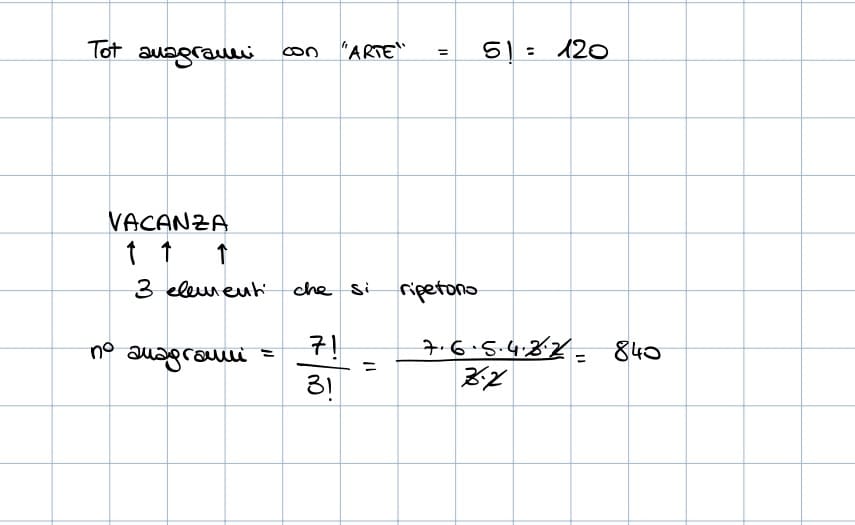 Tot anagrammi con "ARTE" = 5! = 120
VACANZA
↑ ↑ ↑
3 elementi che si ripetono
n° anagrammi = 7!/3! = 7·6·5·4·3·2/3·2 = 840